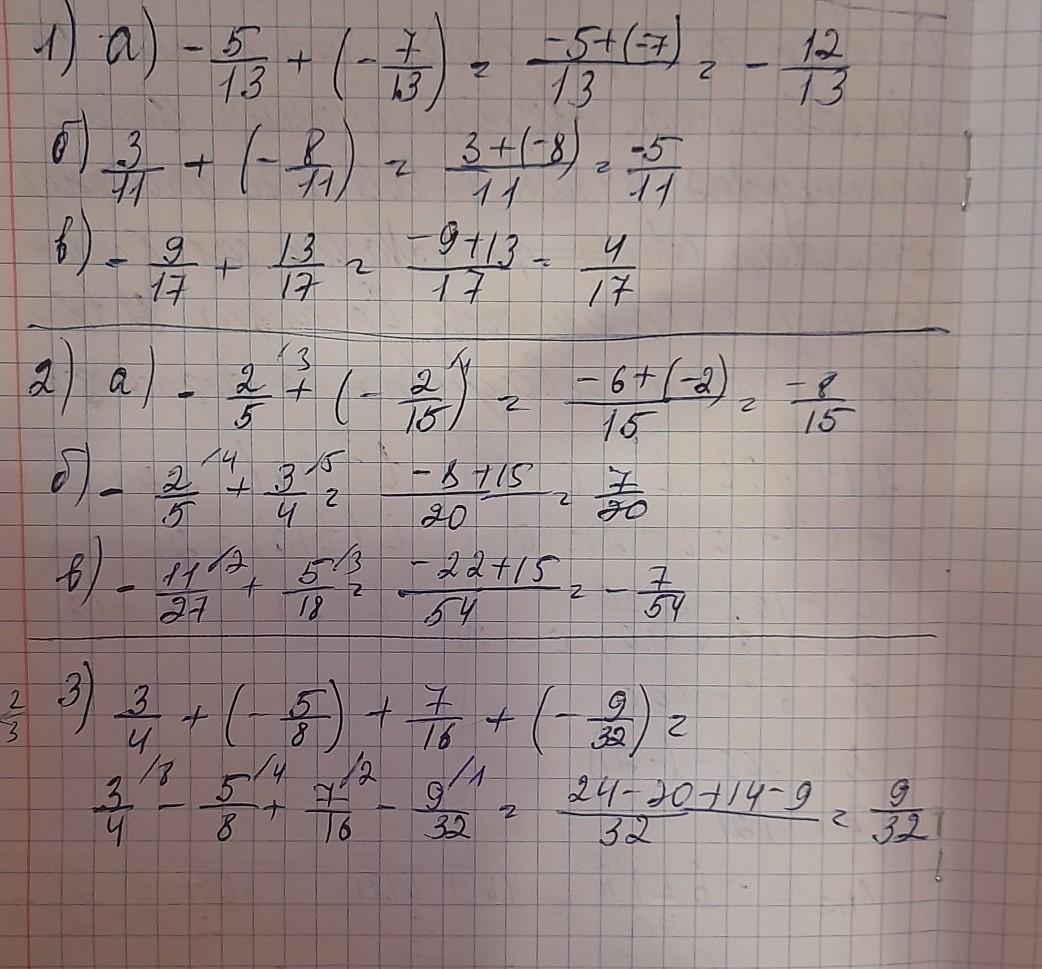 1) а) - 5/13 + (- 7/13) = -5+(-7)/13 = - 12/13
б) 3/11 + (- 8/11) = 3+(-8)/11 = -5/11
в) - 9/17 + 13/17 = -9+13/17 = 4/17
2) а) - 2/5 /3 + (- 2/15 /1) = -6+(-2)/15 = -8/15
б) - 2/5 /4 + 3/4 /5 = -8+15/20 = 7/20
в) - 11/27 /2 + 5/18 /3 = -22+15/54 = - 7/54
2/3 3) 3/4 + (- 5/8) + 7/16 + (- 9/32) =
3/4 /8 - 5/8 /4 + 7/16 /2 - 9/32 /1 = 24-20+14-9/32 = 9/32